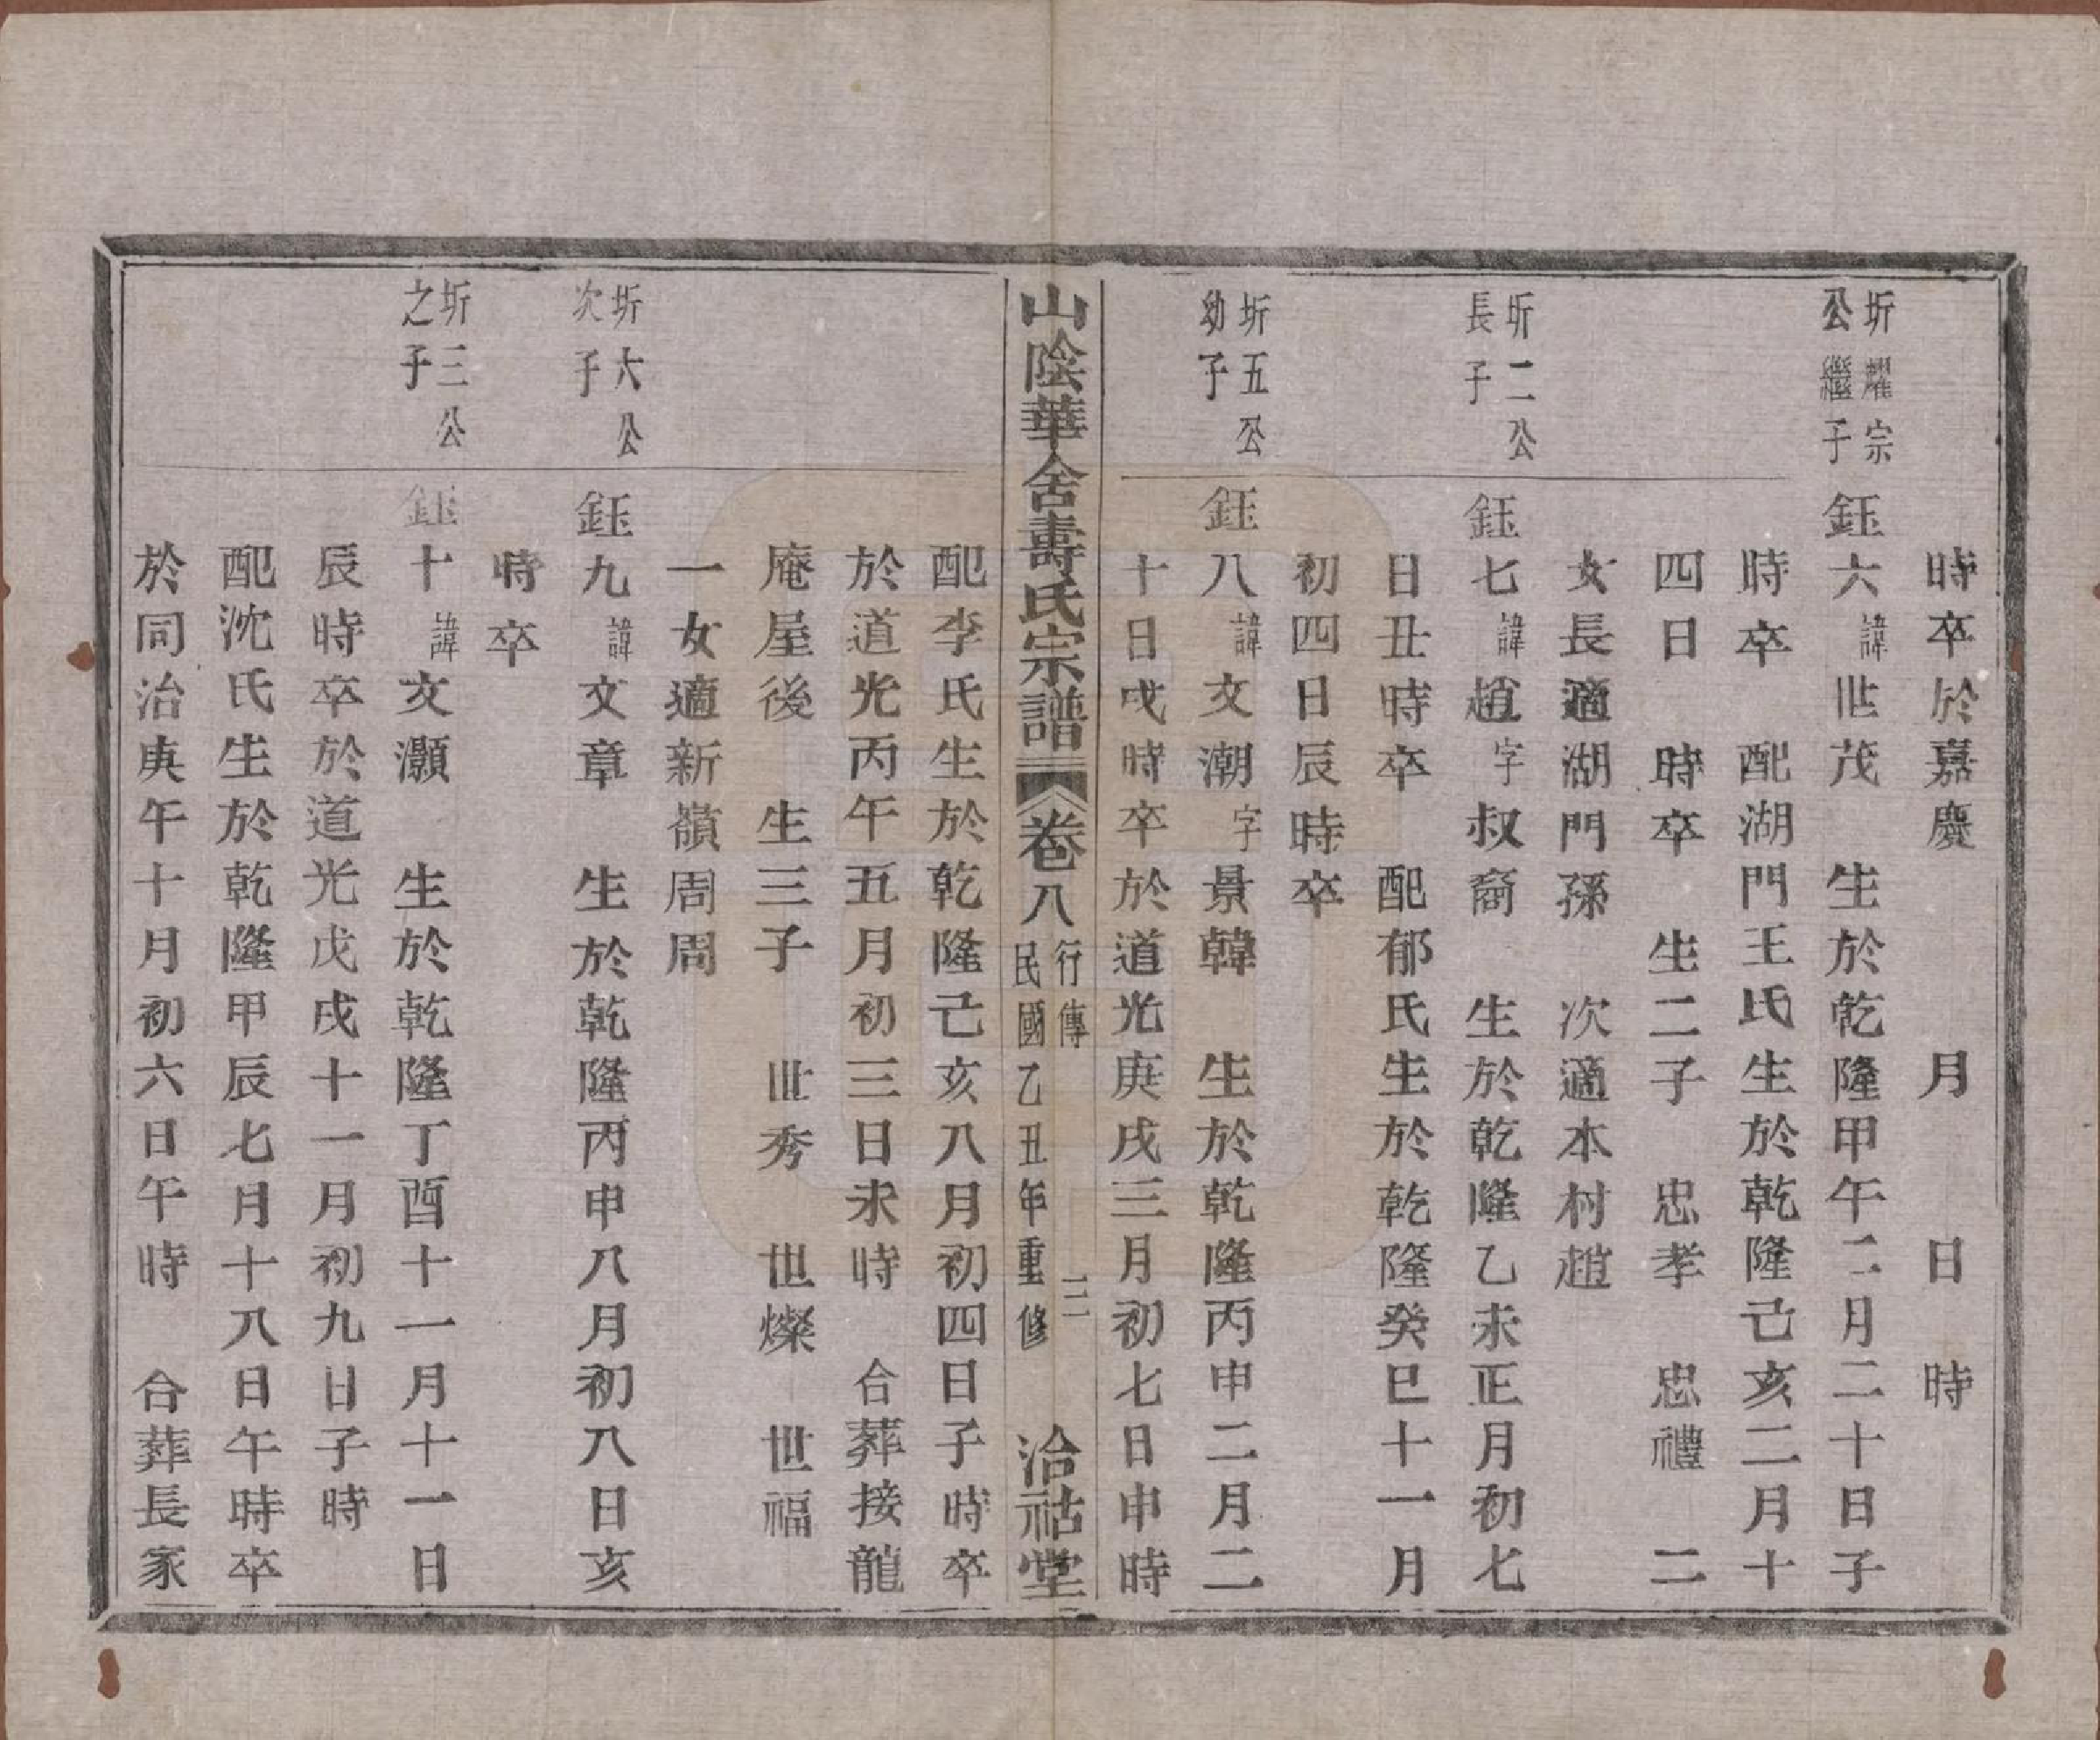 時卒於嘉慶　月　日　時
圻耀宗
公繼子
鈺六諱世茂　生於乾隆甲午二月二十日子
時卒　配湖門王氏生於乾隆己亥二月十
四日　時卒　生二子　忠孝　忠禮　二
女長適湖門孫　次適本村趙
圻二公
長子
鈺七諱趙字叔裔　生於乾隆乙未正月初七
日丑時卒　配郁氏生於乾隆癸巳十一月
初四日辰時卒
圻五公
幼子
鈺八諱文潮字景韓　生於乾隆丙申二月二
十日戌時卒於道光庚戌三月初七日申時
山陰華舍壽氏宗譜　卷八　行傳　民國乙丑年重修　三　洽祜堂
配李氏生於乾隆己亥八月初四日子時卒
於道光丙午五月初三日未時　合葬接龍
庵屋後　生三子　世秀　世燦　世福
一女適新嶺周周
圻大公
次子
鈺九諱文章　生於乾隆丙申八月初八日亥
時卒
圻三公
之子
鈺十諱文灝　生於乾隆丁酉十一月十一日
辰時卒於道光戊戌十一月初九日子時
配沈氏生於乾隆甲辰七月十八日午時卒
於同治庚午十月初六日午時　合葬長家